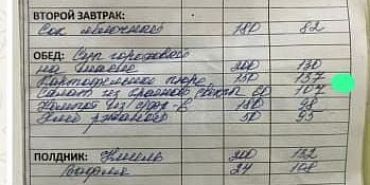 ВТОРОЙ ЗАВТРАК:
Сок яблочный 180 82
ОБЕД: Суп гороховый
на 200 130
Картофельное пюре 150 137
Салат из свеклы 60 107
Компот из 180 98
Хлеб ржаной 50 95
ПОЛДНИК: 200 132
Вафля 24 108